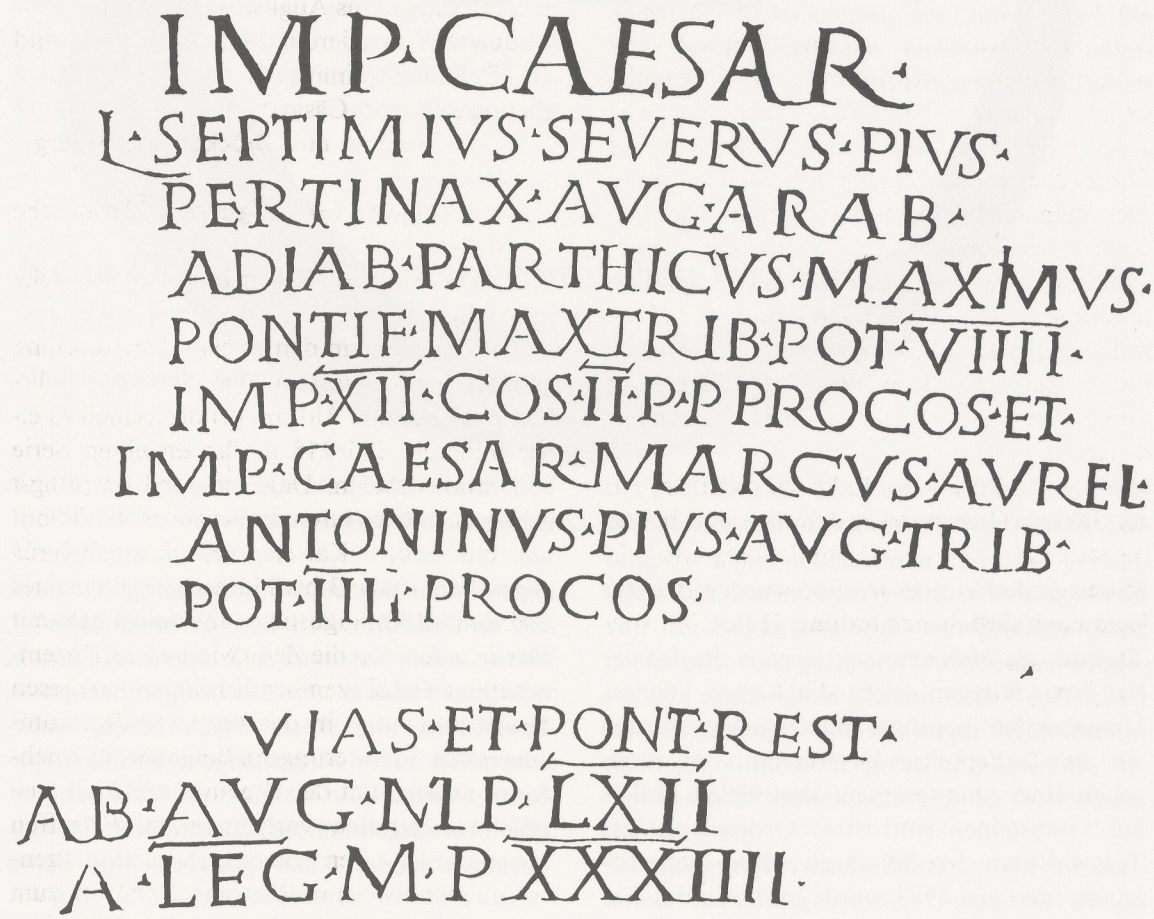 IMP·CAESAR·
L·SEPTIMIVS·SEVERVS·PIVS·
PERTINAX·AVG·ARAB·
ADIAB·PARTHICVS MAXIMVS·
PONTIF·MAX·TRIB·POT·VIIII·
IMP·XII·COS·II·P·P PROCOS·ET·
IMP·CAESAR·MARCVS·AVREL·
ANTONINVS·PIVS·AVG·TRIB·
POT·IIII·PROCOS·
VIAS ET PONT·REST·
AP·EVG·M·P·LVIII
A·LEG·M·P·XXXIIII·